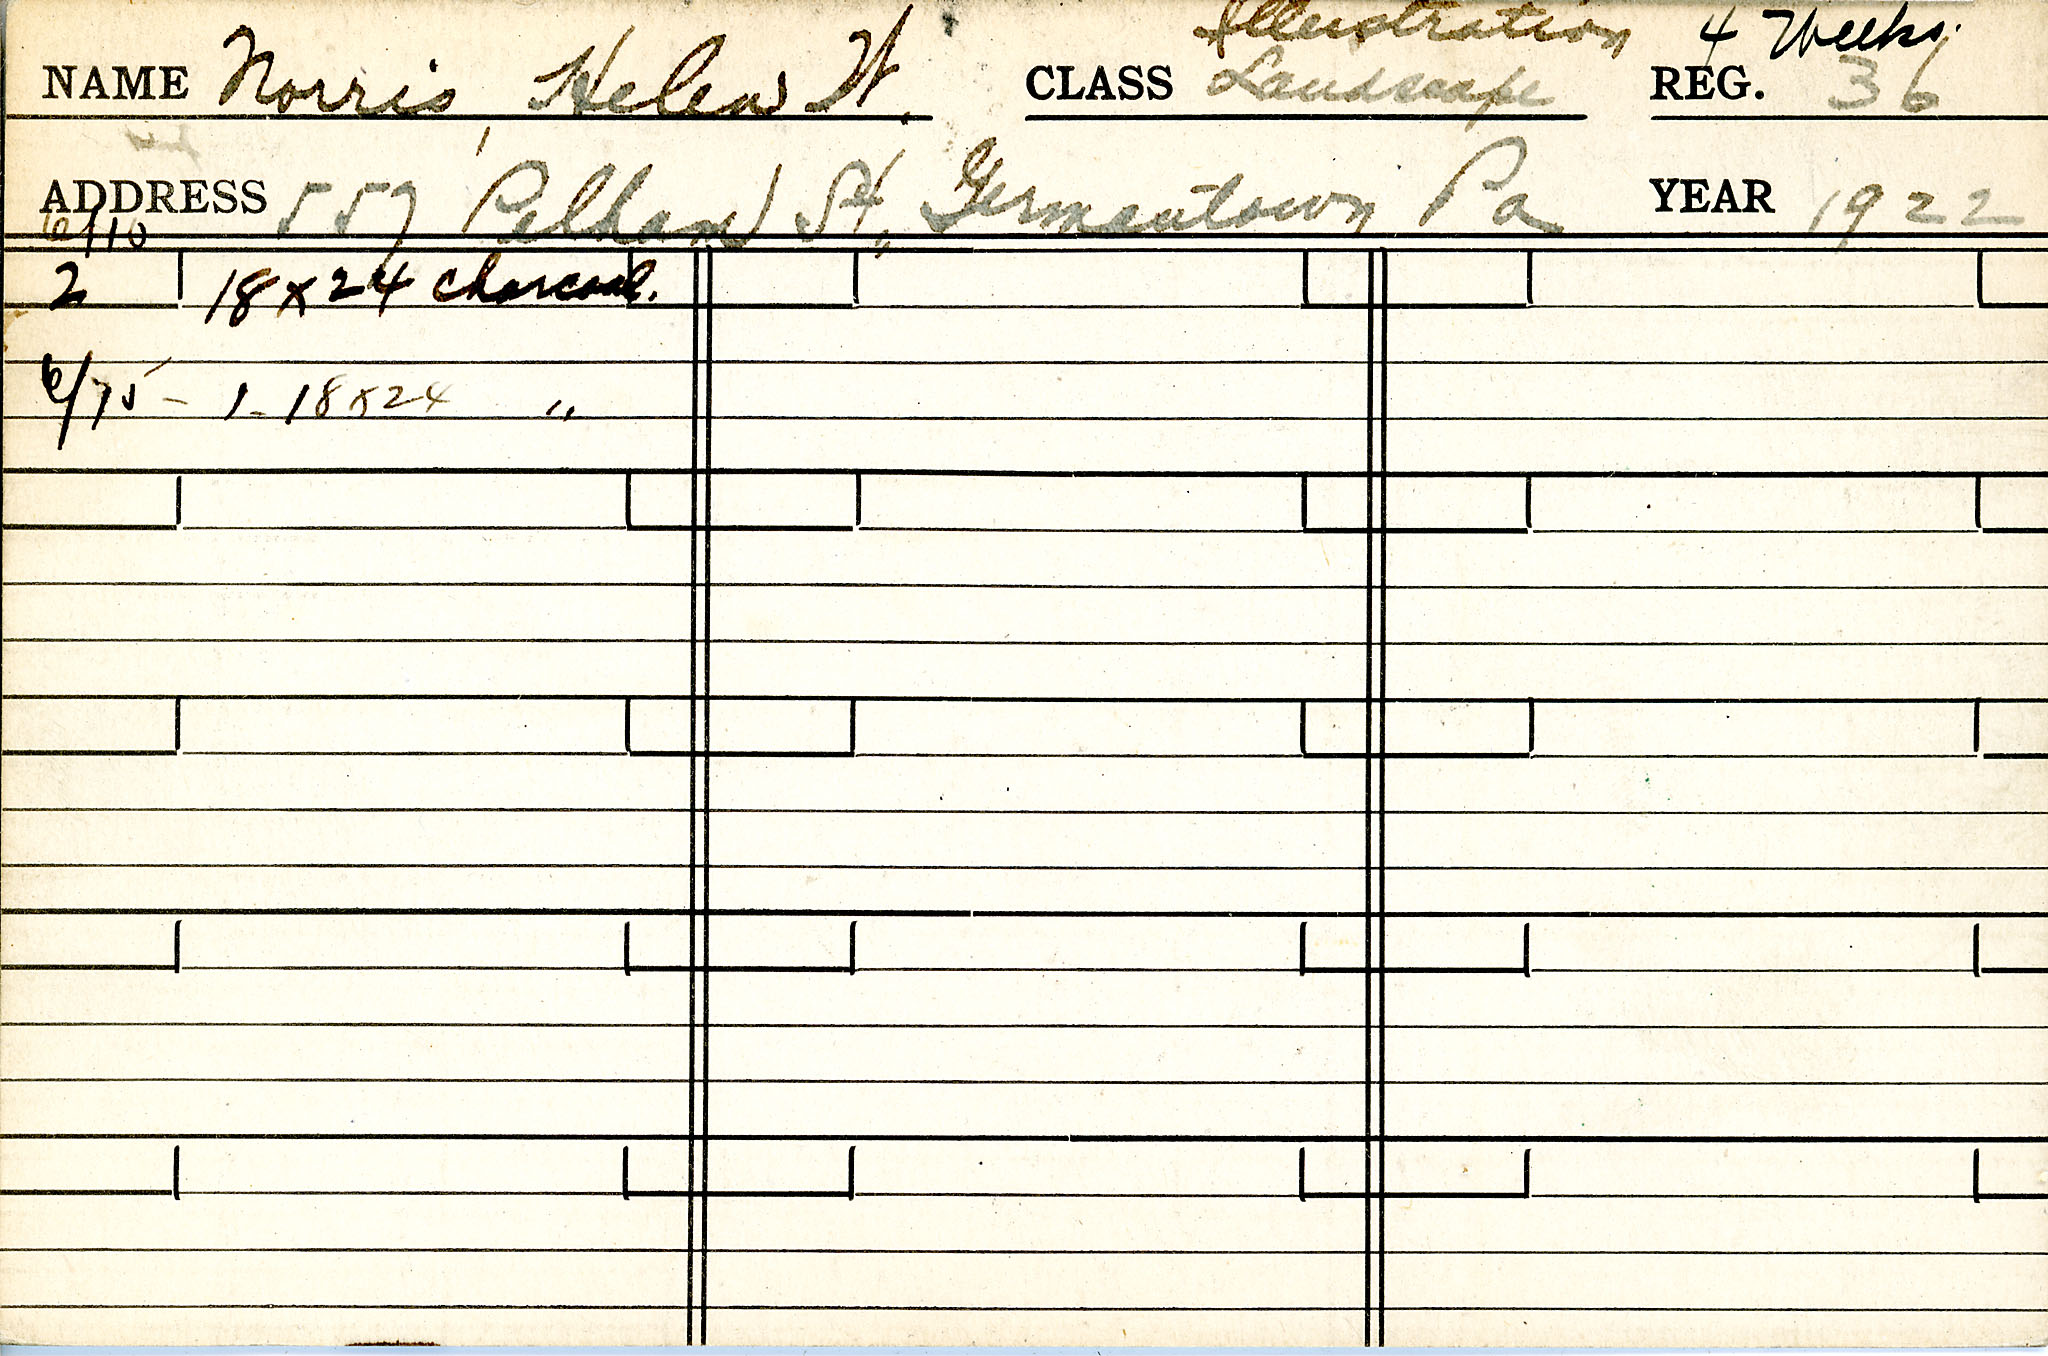 Illustration 4 Weeks.
NAME Norris, Helen W. CLASS Landscape REG. 36
ADDRESS 557 Pelham St., Germantown Pa YEAR 1922
6/10
2 18 x 24 charcoal.
6/15 - 1 - 18 x 24 "